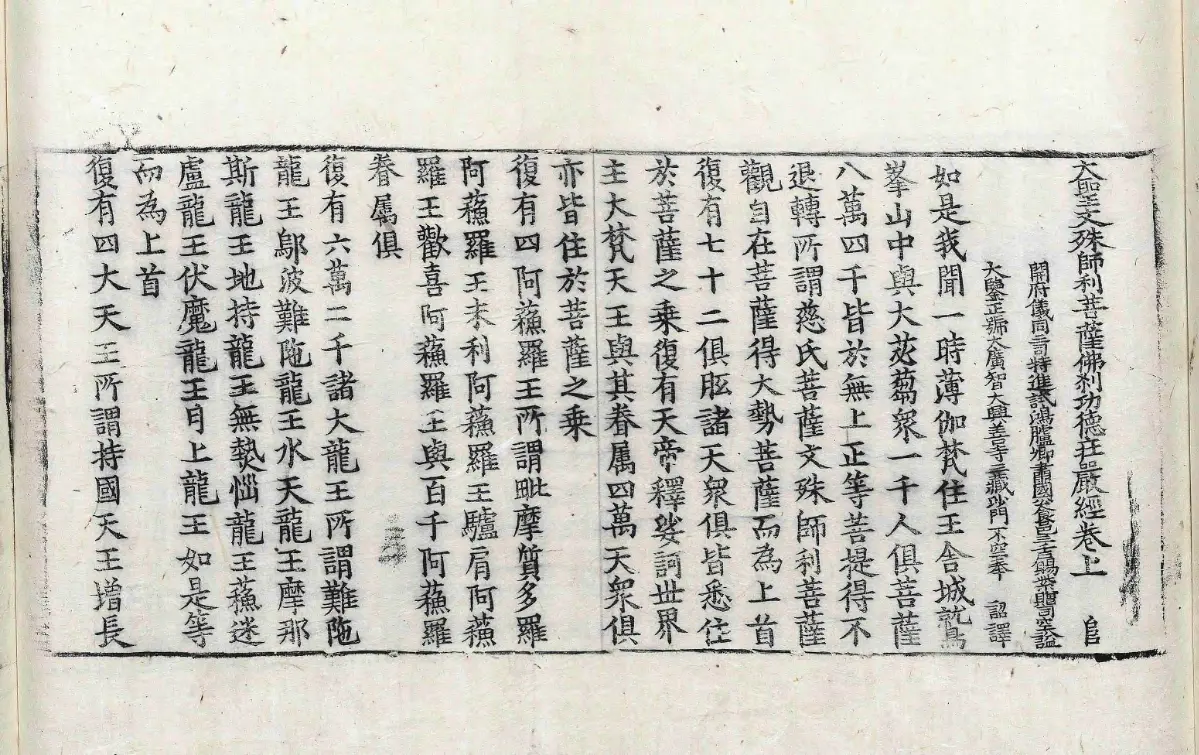 大聖文殊師利菩薩佛刹功德莊嚴經卷上
開府儀同三司特進試鴻臚卿肅國公食邑三千戶賜紫贈司空謚
大鑒正號大廣智大興善寺三藏沙門不空奉 詔譯
如是我聞一時薄伽梵住王舍城就鳥
峯山中與大苾芻衆一千人俱菩薩
八萬四千皆於無上正等菩提得不
退轉所謂慈氏菩薩文殊師利菩薩
觀自在菩薩得大勢菩薩而為上首
復有七十二俱胝諸天衆俱皆悉住
於菩薩之乘復有天帝釋娑訶世界
主大梵天王與其眷属四萬天衆俱
亦皆住於菩薩之乘
復有四阿蘓羅王所謂毗摩質多羅
阿蘓羅王末利阿蘓羅王驢肩阿蘓
羅王歡喜阿蘓羅王與百千阿蘓羅
眷属俱
復有六萬二千諸大龍王所謂難陁
龍王鄔波難陁龍王水天龍王摩那
斯龍王地持龍王無熱惱龍王蘓迷
盧龍王伏魔龍王月上龍王如是等
而為上首
復有四大天王所謂持國天王增長